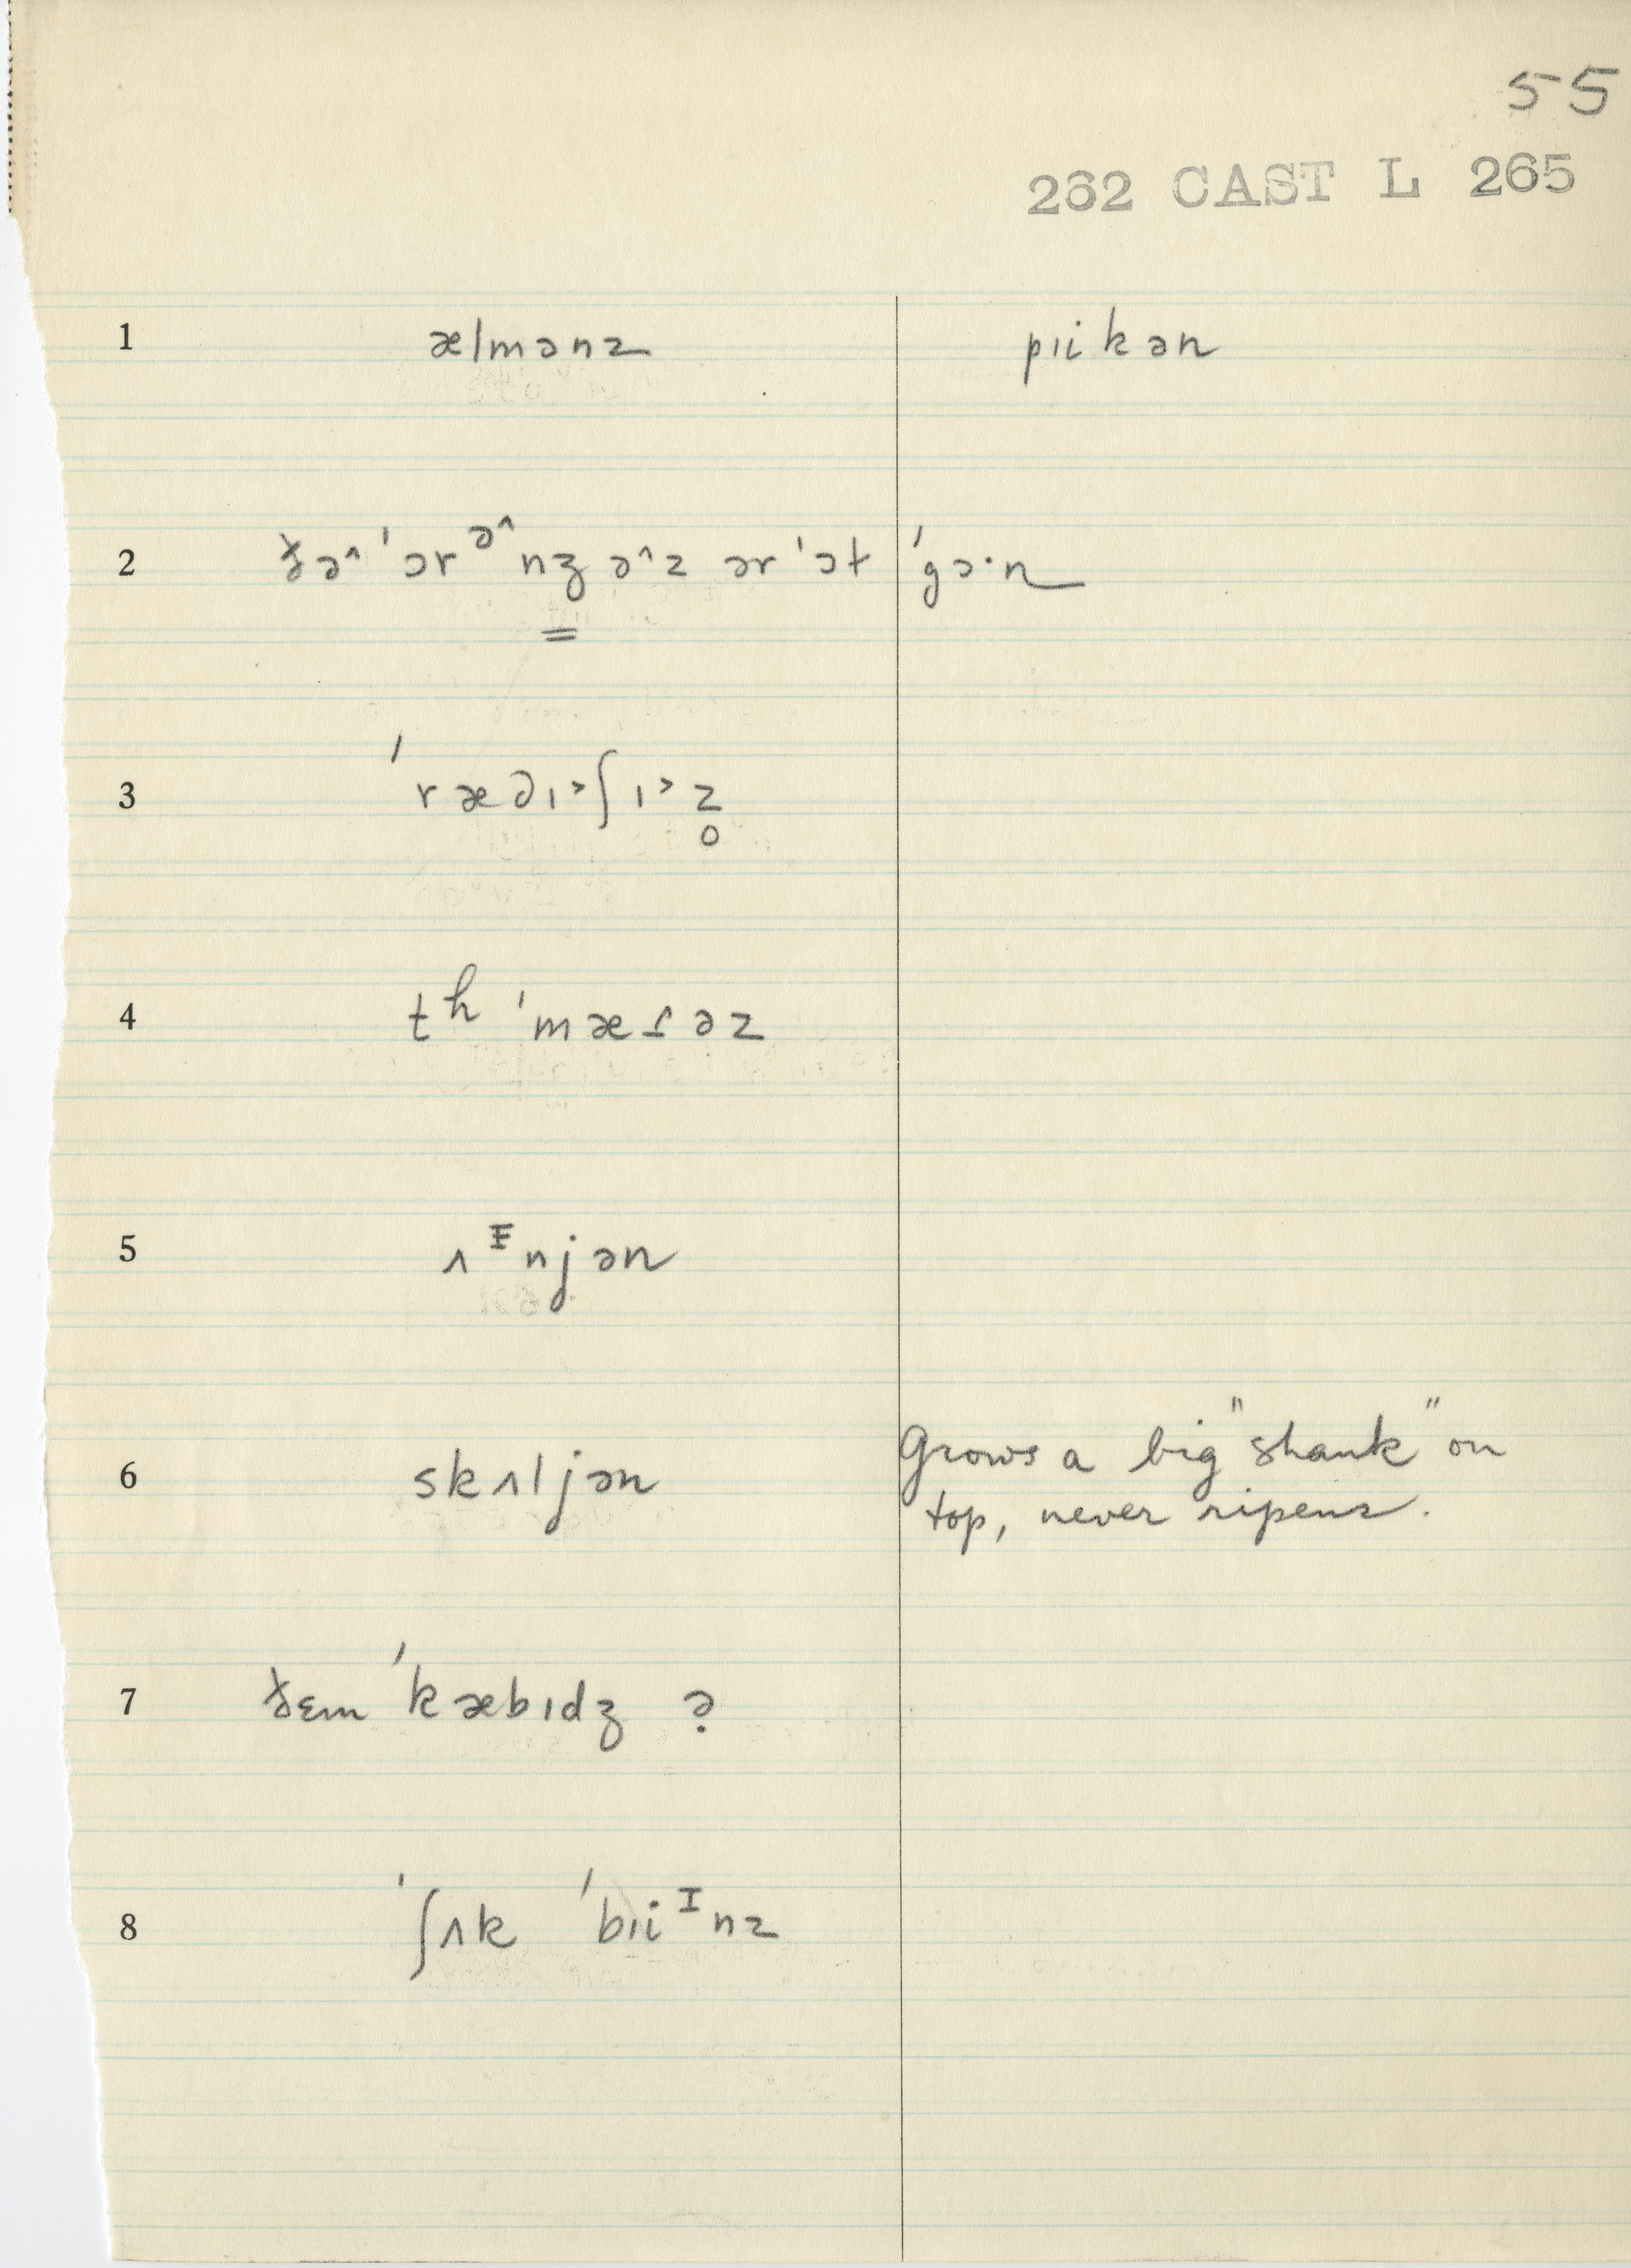 55
262 CAST L 265
1 ælmənz pɪikən
2 ðə^ ˈɔrə^nʒ ə^z ɔrˈɔt ˈgɔ·n
3 ˈræd̬ɪ˃ʃɪ˃z̥
4 tʰ ˈmæɾəz
5 ʌᵻnjən
6 skʌljən Grows a big "shank" on
top, never ripens.
7 ðɛm ˈkæbɪdʒ ə̣
8 ˈʃʌk ˈbɪiᴵnz